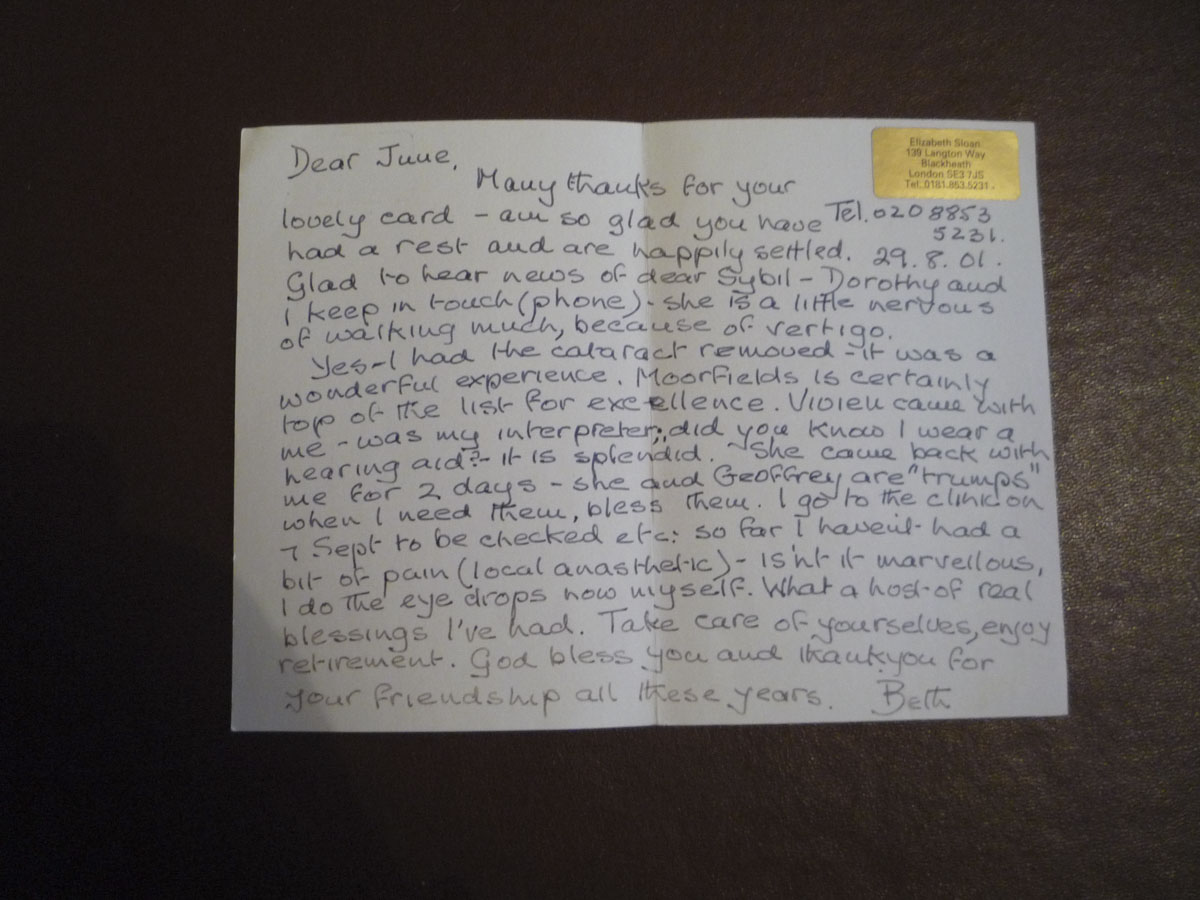 Elizabeth Sloan
139 Langton Way
Blackheath
London SE3 7JS
Tel. 0181.853.5231.
Dear June,
Many thanks for your
lovely card - am so glad you have
Tel. 020 8853
5231.
had a rest and are happily settled.
29.8.01.
Glad to hear news of dear Sybil - Dorothy and
I keep in touch (phone) - she is a little nervous
of walking much, because of vertigo.
Yes - I had the cataract removed - it was a
wonderful experience. Moorfields is certainly
top of the list for excellence. Vivien came with
me - was my interpreter; did you know I wear a
hearing aid? - it is splendid. She came back with
me for 2 days - she and Geoffrey are "trumps"
when I need them, bless them. I go to the clinic on
7 Sept to be checked etc: so far I haven't had a
bit of pain (local anasthetic) - is'nt it marvellous,
I do the eye drops now myself. What a host of real
blessings I've had. Take care of yourselves, enjoy
retirement. God bless you and thankyou for
your friendship all these years. Beth